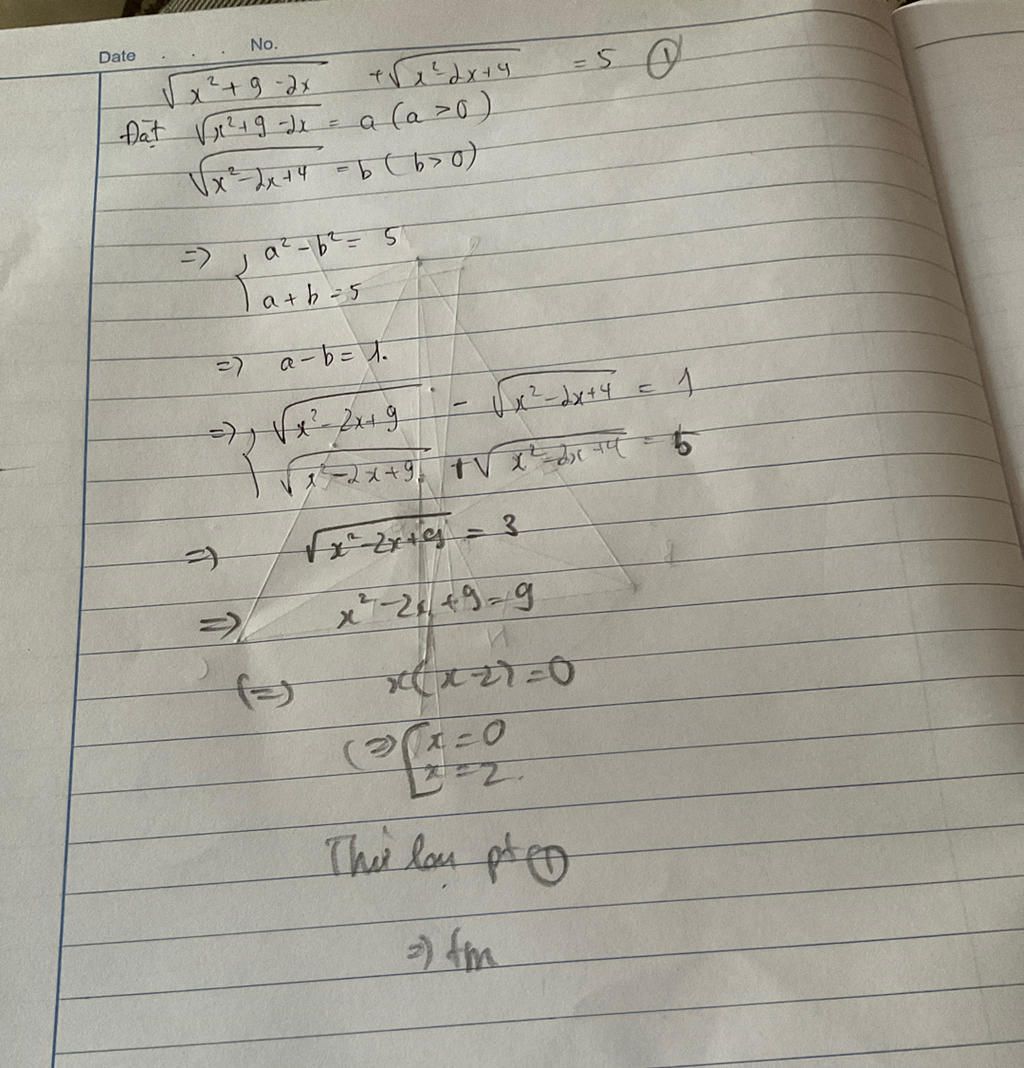 Date . . . No.
√(x² + 9 - 2x) + √(x² - 2x + 4) = 5 ①
Đặt √(x² + 9 - 2x) = a (a > 0)
√(x² - 2x + 4) = b (b > 0)
=> { a² - b² = 5
a + b = 5
=> a - b = 1.
=> { √(x² - 2x + 9) - √(x² - 2x + 4) = 1
√(x² - 2x + 9) + √(x² - 2x + 4) = 5
=> √(x² - 2x + 9) = 3
=> x² - 2x + 9 = 9
(=) x(x - 2) = 0
(=) [ x = 0
x = 2.
Thử lại pt ①
=) tm